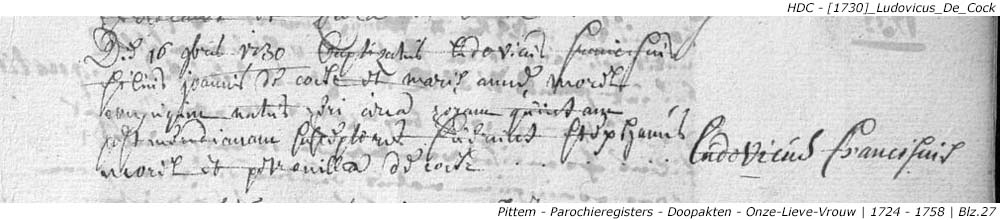 HDC - [1730]_Ludovicus_De_Cock
Die 16 9bris 1730 baptizatus Ludovicus franciscus
filius joannis de cock et mariæ annæ morels
conjugum natus heri circa horam quintam
postmeridianam susceptores fuerunt stephanus
et petronilla de cock
Ludovicus franciscus
Pittem - Parochieregisters - Doopakten - Onze-Lieve-Vrouw | 1724 - 1758 | Blz.27